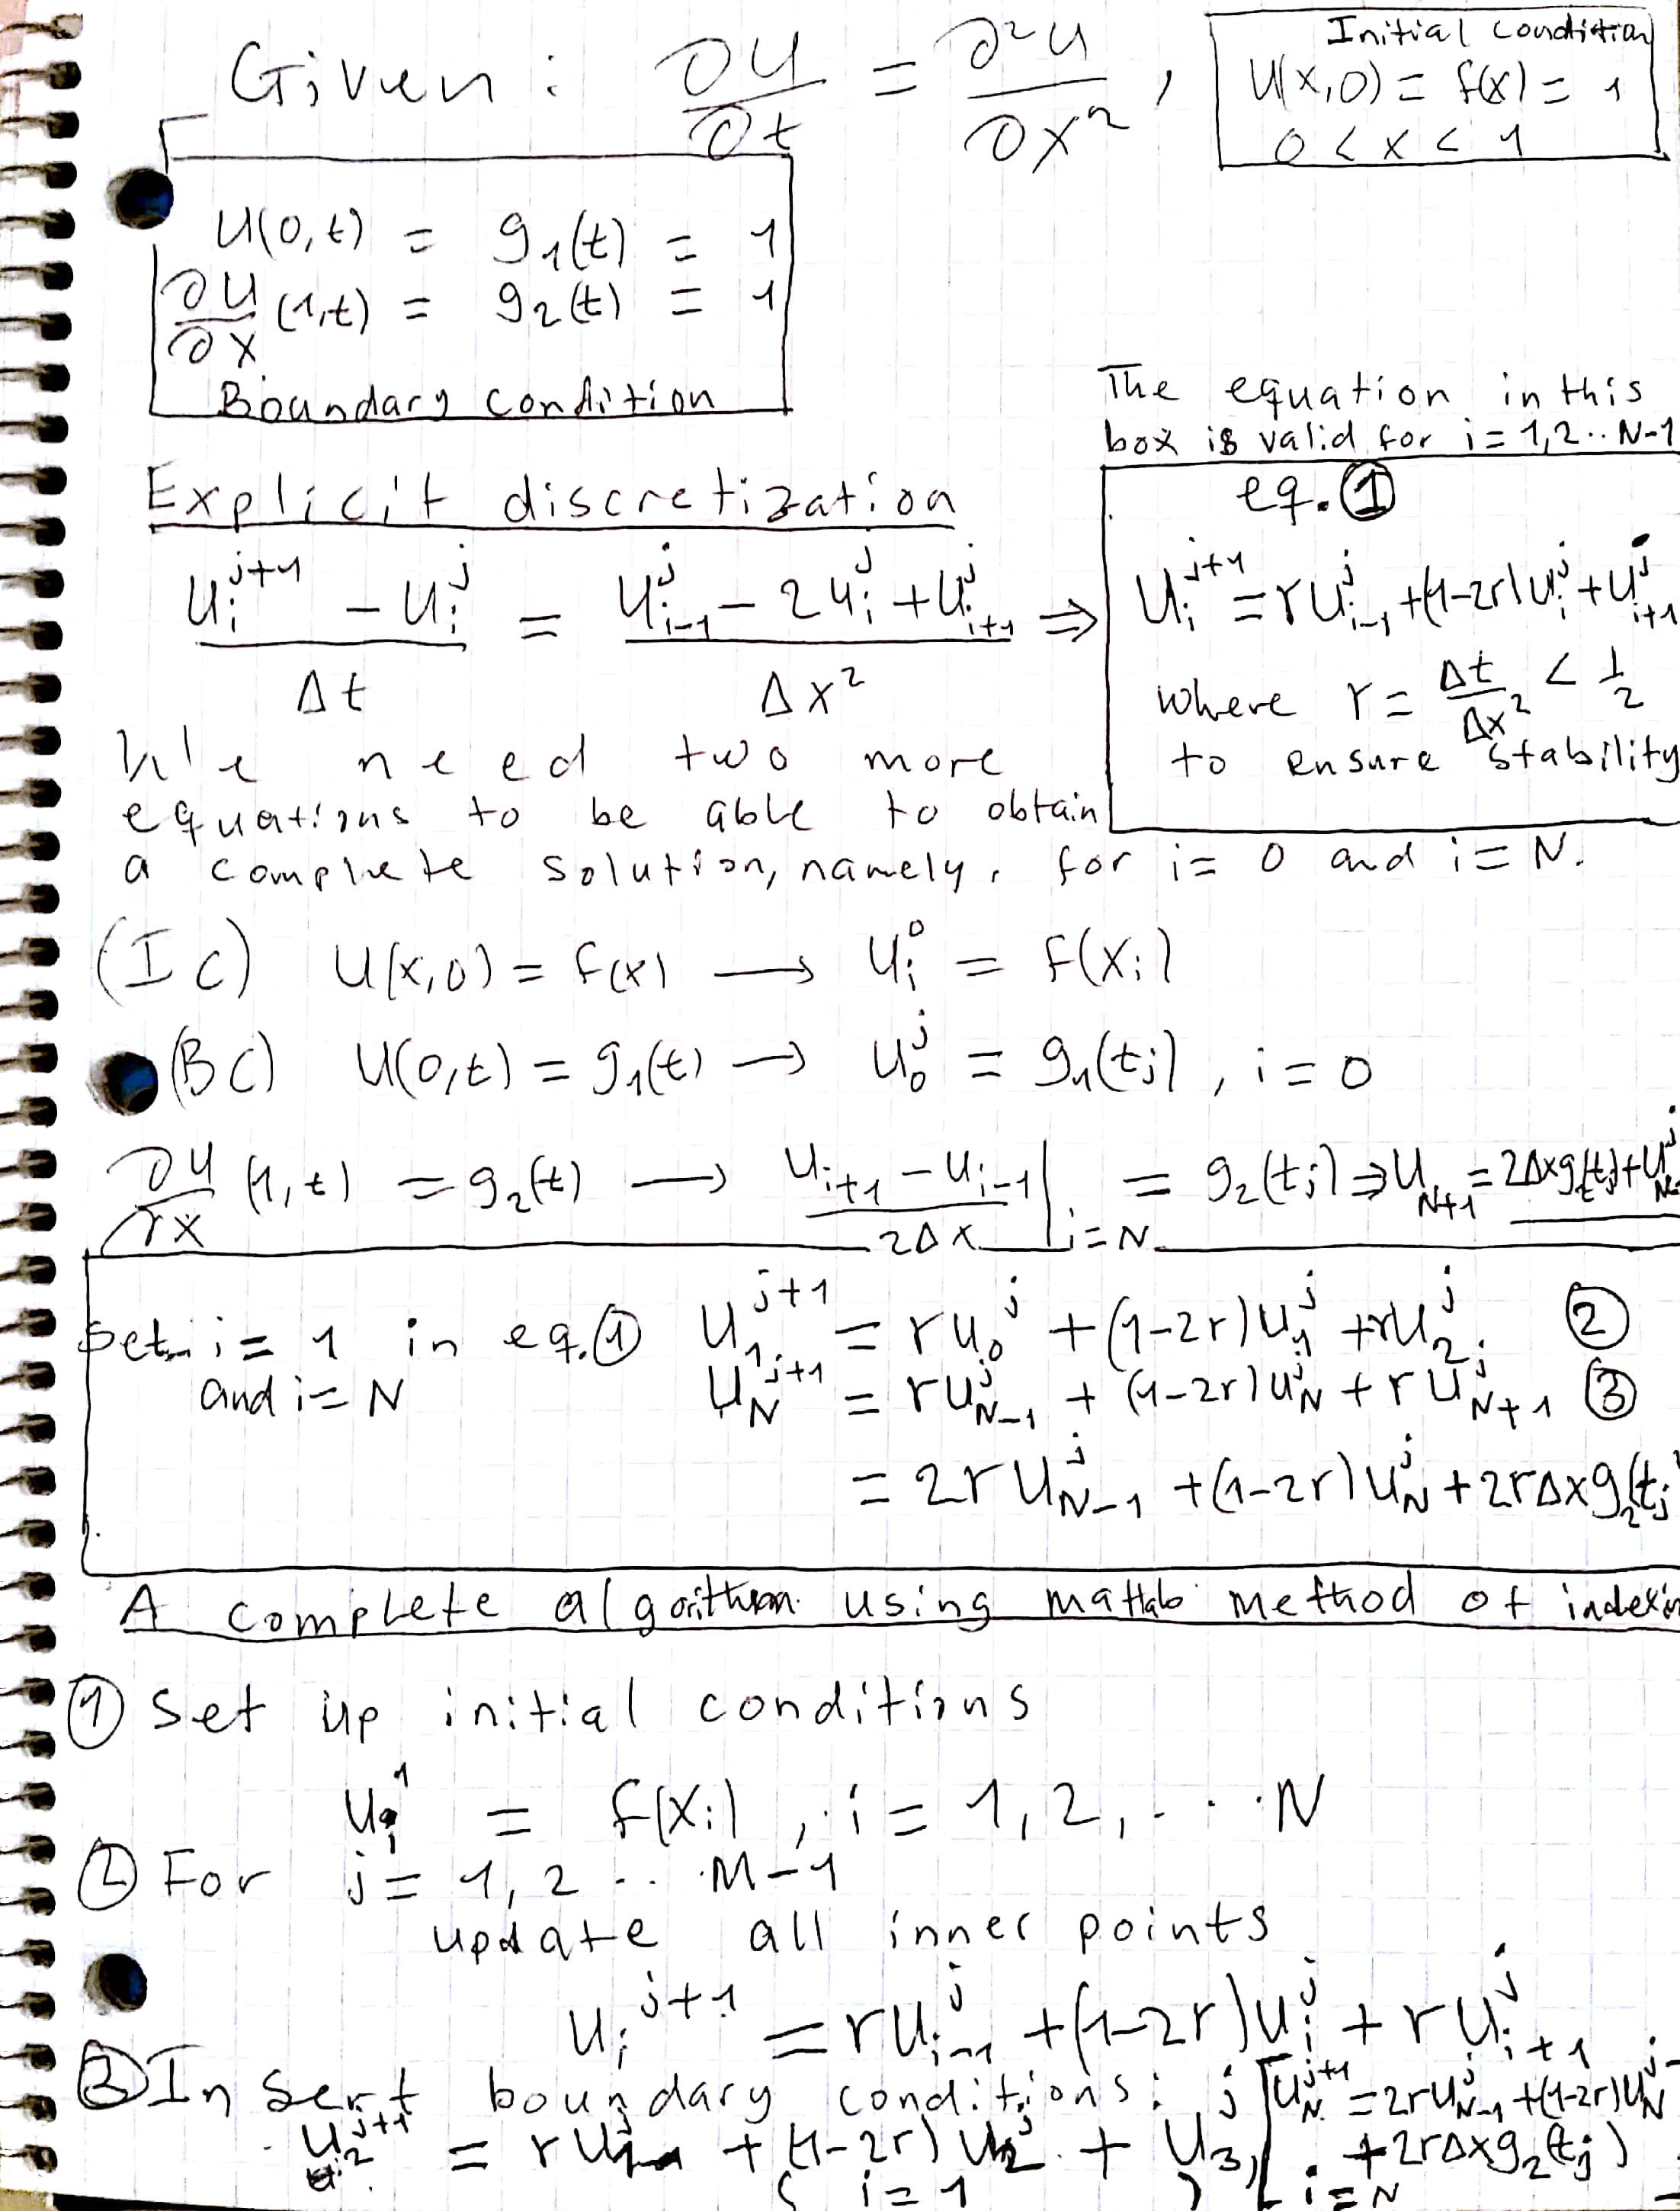 Given: ∂u/∂t = ∂²u/∂x² ,
Initial condition
u(x,0) = f(x) = 1
0 < x < 1
u(0,t) = g₁(t) = 1
∂u/∂x (1,t) = g₂(t) = 1
Boundary condition
The equation in this
box is valid for i = 1,2..N-1
Explicit discretization
(uᵢ^{j+1} - uᵢ^j)/Δt = (u_{i-1}^j - 2uᵢ^j + u_{i+1}^j)/Δx² ⇒
eq. ①
uᵢ^{j+1} = r u_{i-1}^j + (1-2r)uᵢ^j + u_{i+1}^j
where r = Δt/Δx² < 1/2
to ensure stability
We need two more
equations to be able to obtain
a complete solution, namely, for i = 0 and i = N.
(IC) u(x,0) = f(x) → uᵢ^0 = f(xᵢ)
(BC) u(0,t) = g₁(t) → u₀^j = g₁(tj), i = 0
∂u/∂x (1,t) = g₂(t) → (u_{i+1} - u_{i-1})/2Δx |_{i=N} = g₂(tj) ⇒ u_{N+1} = 2Δx g₂(tj) + u_N^j
Set i = 1 in eq. ① u₁^{j+1} = r u₀^j + (1-2r)u₁^j + r u₂^j ②
and i = N u_N^{j+1} = r u_{N-1}^j + (1-2r)u_N^j + r u_{N+1}^j ③
= 2r u_{N-1}^j + (1-2r)u_N^j + 2rΔx g₂(tj
A complete algorithm using matlab method of indexin
① Set up initial conditions
uᵢ^1 = f(xᵢ), i = 1, 2, ... N
② For j = 1, 2 .. M-1
update all inner points
uᵢ^{j+1} = r u_{i-1}^j + (1-2r)uᵢ^j + r u_{i+1}^j
③ Insert boundary conditions:
u₂^{j+1} = r u₁^j + (1-2r) u₂^j + u₃^j,
( i = 1 )
[ u_N^{j+1} = 2r u_{N-1}^j + (1-2r)u_N^j
+ 2rΔx g₂(tj)
i = N